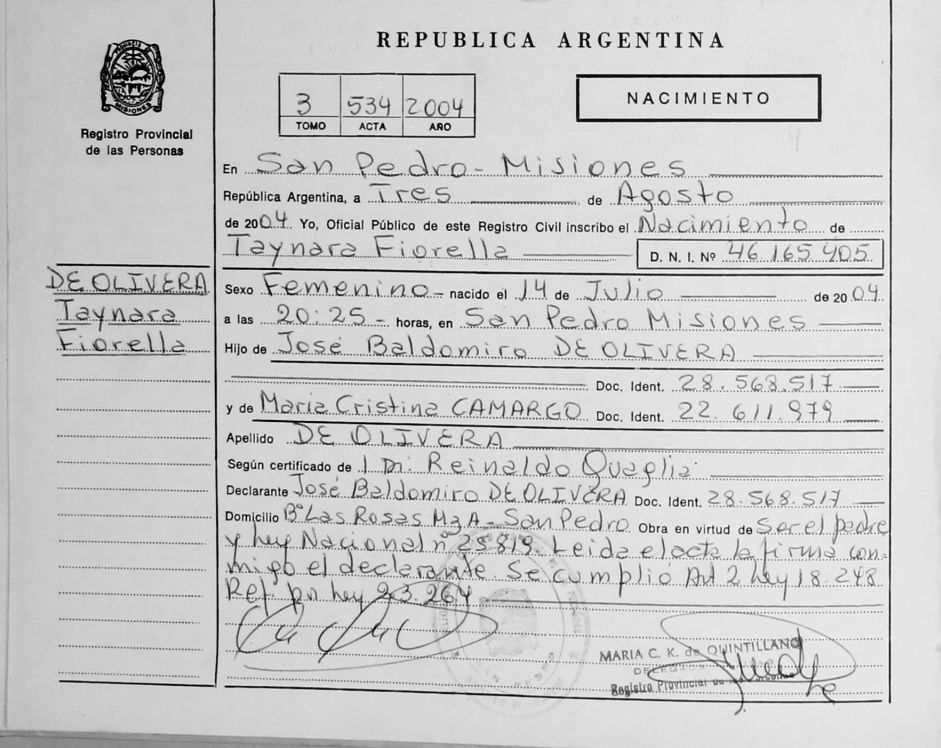 REPUBLICA ARGENTINA
PROVINCIA DE
MISIONES
Registro Provincial
de las Personas
3 534 2004
TOMO ACTA AÑO
NACIMIENTO
En San Pedro - Misiones
República Argentina, a Tres de Agosto
de 2004 Yo, Oficial Público de este Registro Civil inscribo el Nacimiento de
Taynara Fiorella D. N. I. Nº 46.165.405
DE OLIVERA
Taynara
Fiorella
Sexo Femenino - nacido el 14 de Julio de 2004
a las 20:25 - horas, en San Pedro Misiones
Hijo de José Baldomiro DE OLIVERA
Doc. Ident. 28.568.517
y de Maria Cristina CAMARGO Doc. Ident. 22.611.979
Apellido DE OLIVERA
Según certificado de 1 Dr. Reinaldo Quaglia
Declarante José Baldomiro DE OLIVERA Doc. Ident. 28.568.517
Domicilio Bº Las Rosas Mz A - San Pedro. Obra en virtud de Ser el padre
y Ley Nacional nº 25819. Leida el acta la firma con=
migo el declarante Se cumplió Art 2 Ley 18.248
Ref. por Ley 23.264
MARIA C. K. de QUINTILLANO
DELEGADA
Registro Provincial de las Personas